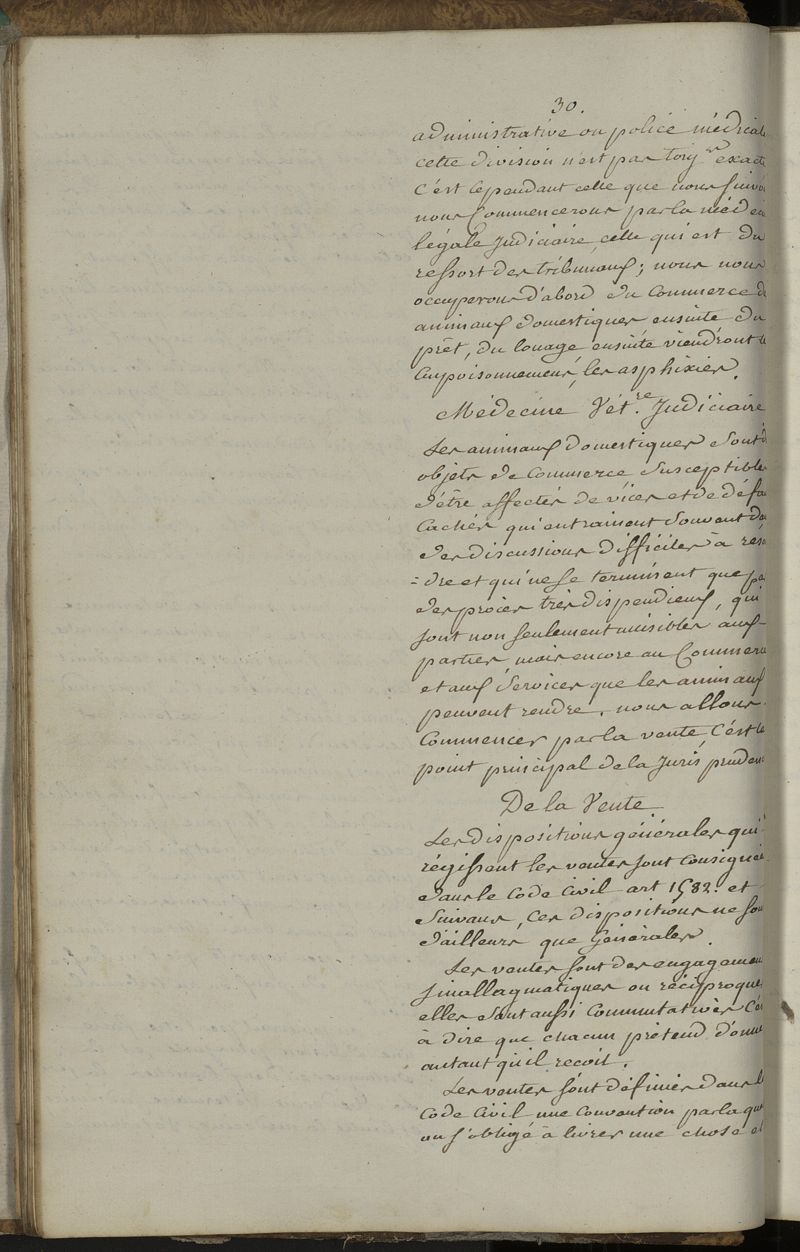 30.
administrative ou police médical
cette division n'est pas touj rs exacte
C'est cependant celle que nous suivo
nous Commencerons par la médeci
légale Judiciaire, celle qui est du
ressort des tribunaux ; nous nous
occuperons d'abord du Commerce d
animaux domestiques ensuite du
prêt, du louage ensuite viendront le
Empoisonnemens, les asphixies.
Médecine Vét.re Judiciaire
Les animaux domestiques sont d
objets de Commerce susceptibles
d'être affectés de vices et de défau
Cachés qui entrainent souvent da
des discussions difficiles à résou
=dre et qui ne se terminent que pa
des procès très dispendieux, qui
sont non seulement nuisibles aux
parties mais encore au Commerce
et aux Services que les animaux
peuvent rendre. nous allons
Commencer par la vente, C'est le
point principal de la Jurisprudenc
De la Vente
Les dispositions générales qui
régissent les ventes sont Consignée
dans le Code Civil art 1582. et
Suivans, Ces dispositions ne son
d'ailleurs que Générales.
Les ventes sont des engagemen
Sinallagmatiques ou réciproques
elles sont aussi Commutatives C'es
à dire que chacun prétend donne
autant qu'il reçoit.
Les ventes sont définies dans l
Code Civil une Convention par la qu
on s'oblige à livrer une chose et